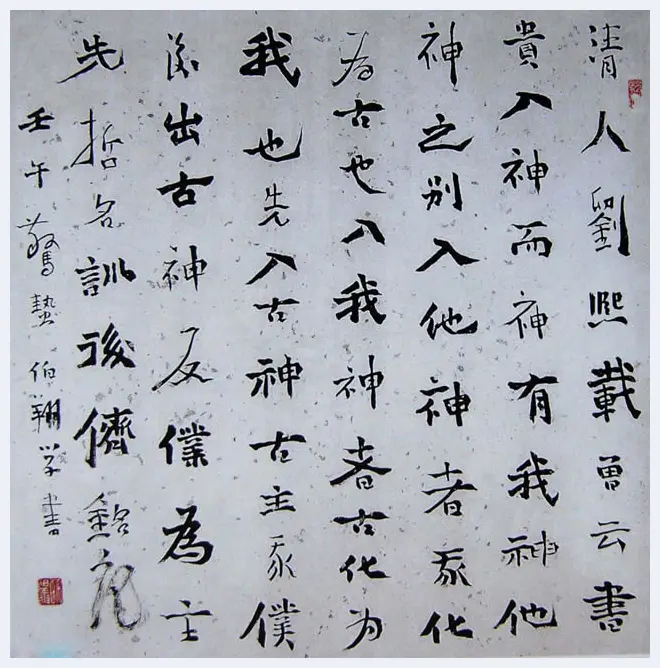 清人劉熙載曾云書
貴入神而神有我神他
神之别入他神者我化
為古也入我神者古化為
我也先入古神古主我僕
後出古神反僕為主
先哲名訓後儕
壬午驚蟄伯翔學書